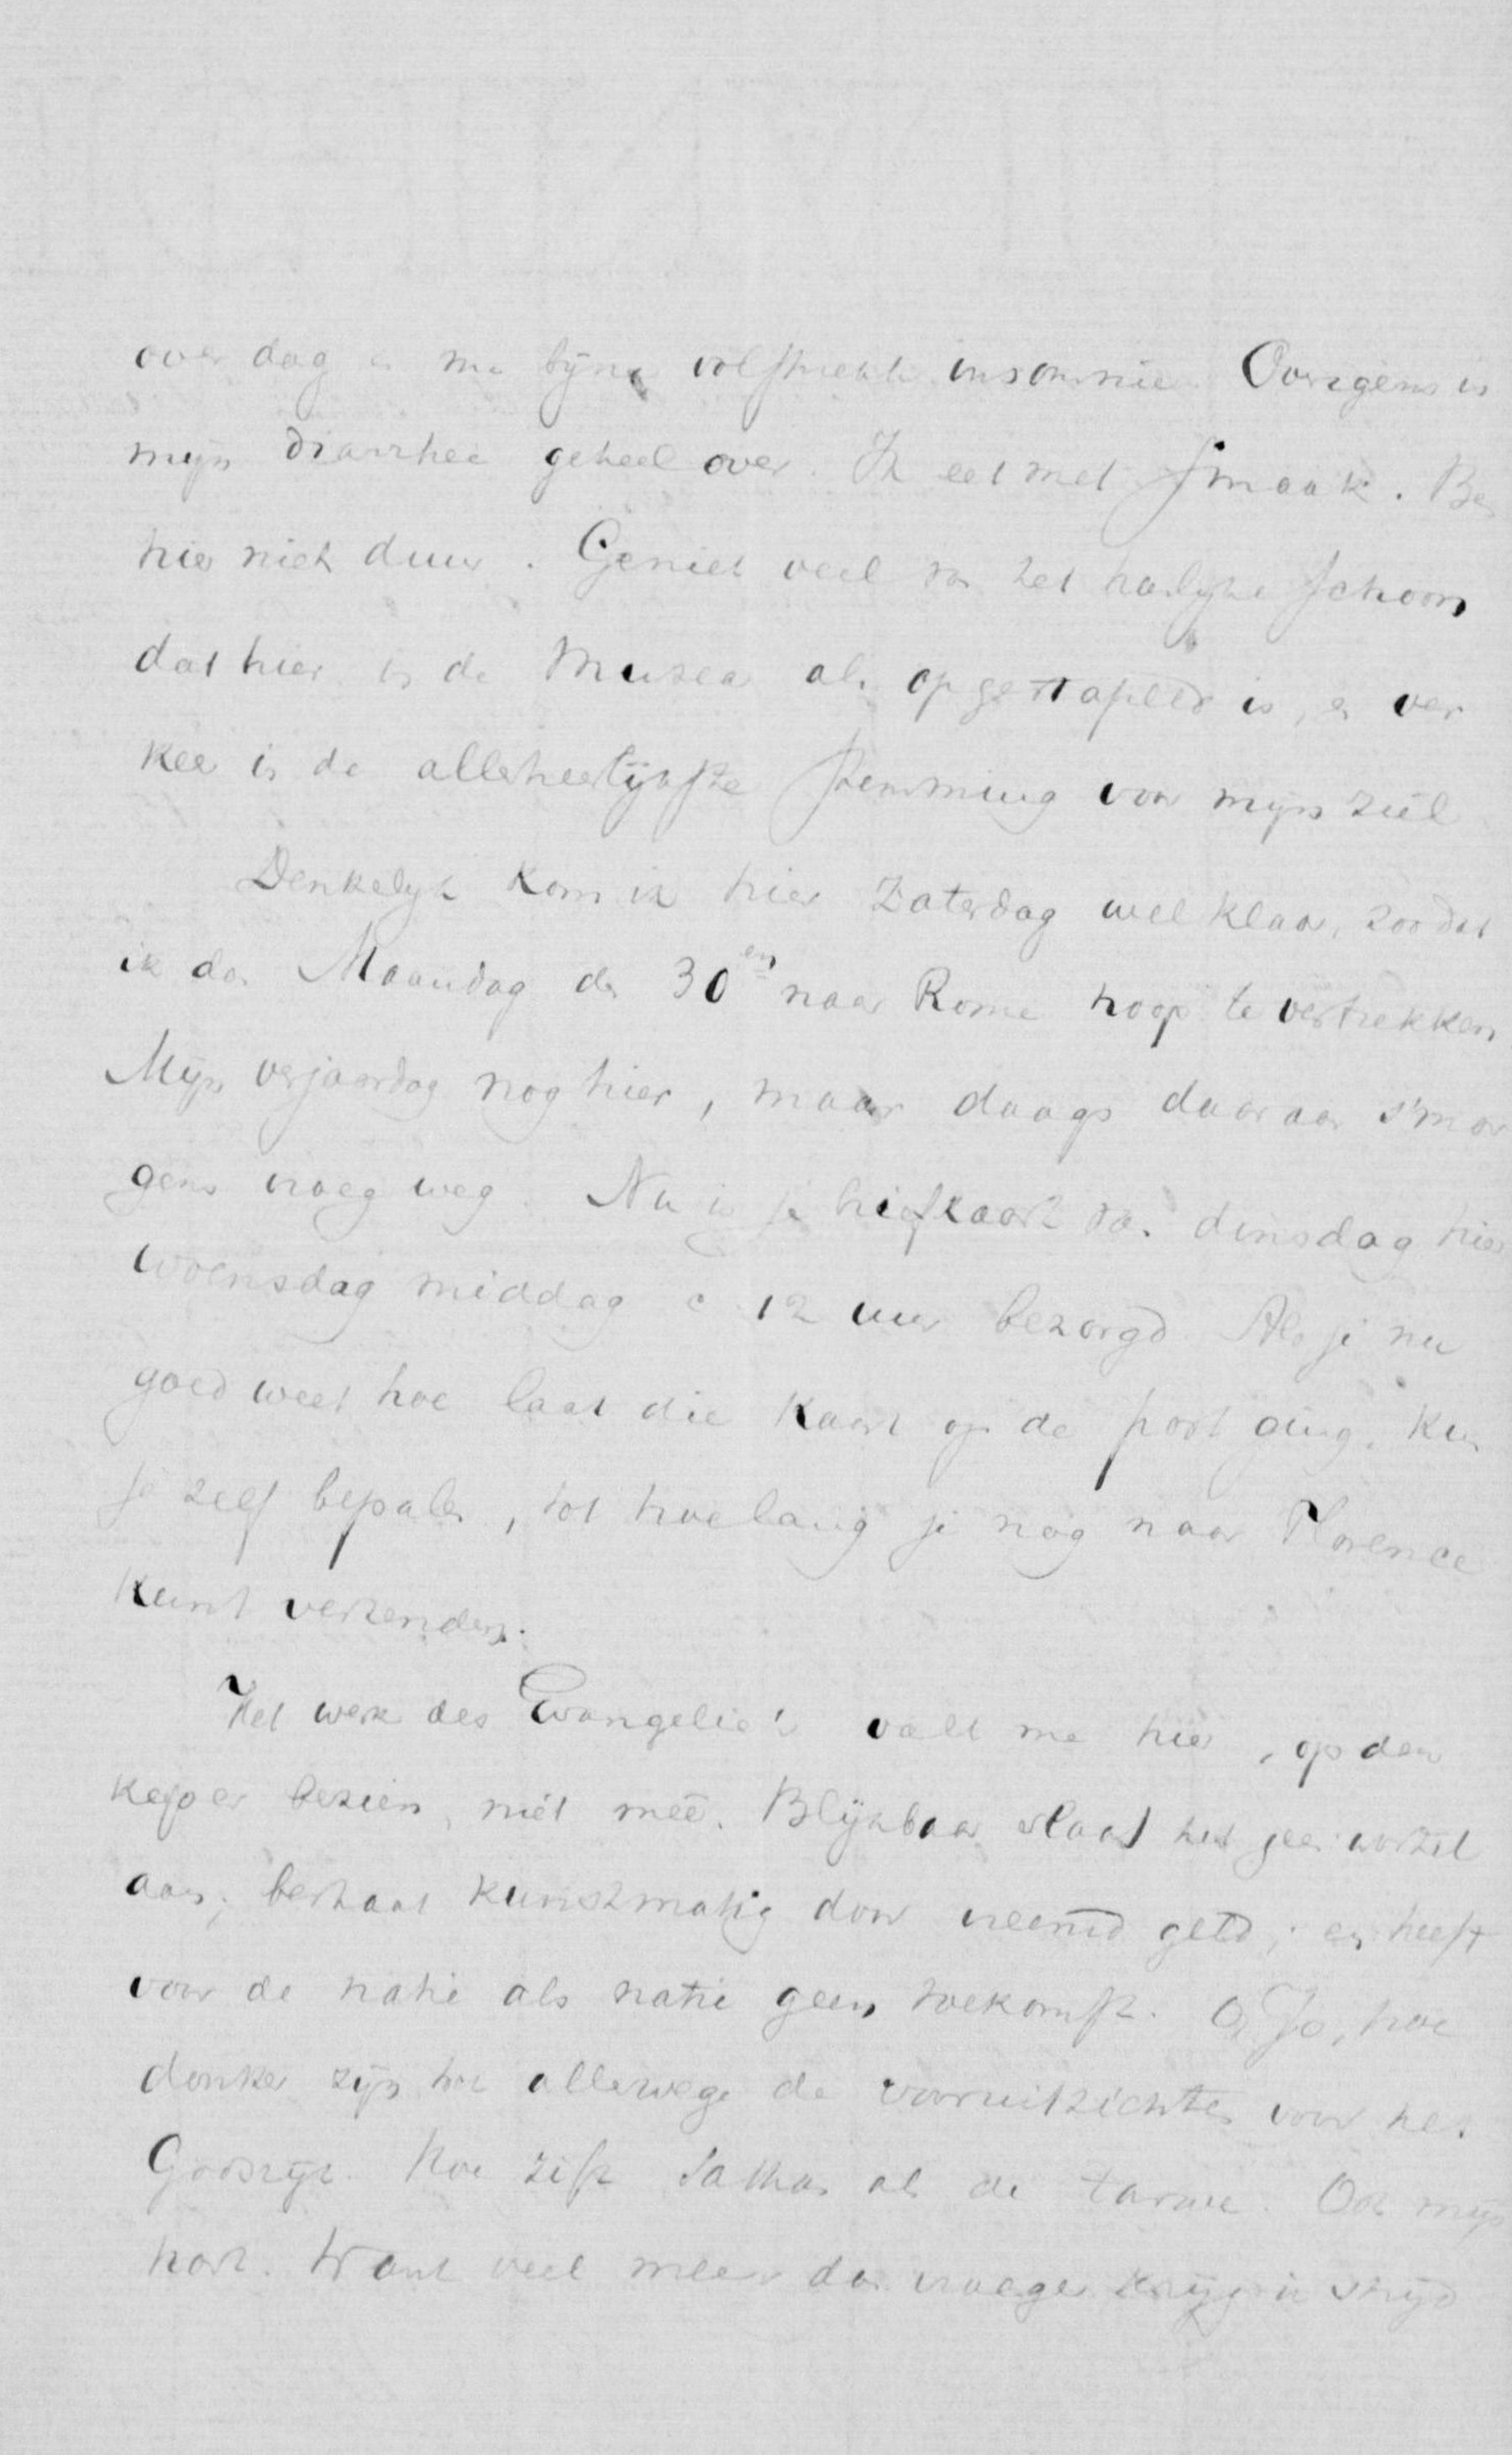 over dag en me bijna volstrekte insomnie. Overigens is
mijn diarrhee geheel over. Ik eet met smaak. Ben
hier niet duur. Geniet veel van het heerlijke schoon
dat hier in de Musea als opgestapeld is, en ver
keer in de allerheerlijkste stemming voor mijn ziel
Denkelijk kom ik hier Zaterdag wel klaar, zoodat
ik dan Maandag den 30en naar Rome hoop te vertrekken
Mijn verjaardag nog hier, maar daags daaraan s'mor
gens vroeg weg. Nu is je briefkaart van dinsdag hier
woensdag middag c 12 uur bezorgd Als je nu
goed weet hoe laat die kaart op de post ging, kun
je zelf bepalen, tot hoelang je nog naar Florence
kunt verzenden.
Het werk des Evangelie's valt me hier, op den
keper bezien, niet meê. Blijkbaar slaat het geen wortel
aan; bestaat kunstmatig door vreemd geld; en heeft
voor de natie als natie geen toekomst. O, Jo, hoe
donker zijn toch allerwege de vooruitzichten voor het
Godsrijk. Hoe zift Sathan als de tarwe. Ook mijn
hart. Want veel meer dan vroeger krijg ik strijd